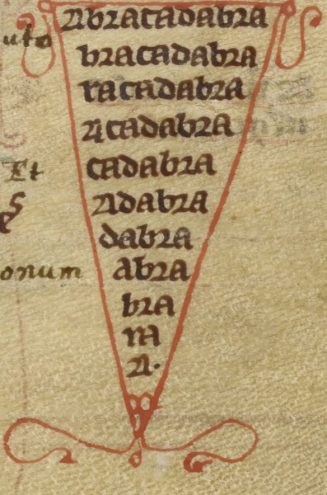 Abracadabra
bracadabra
racadabra
acadabra
cadabra
adabra
dabra
abra
bra
ra
a.
Et
onum